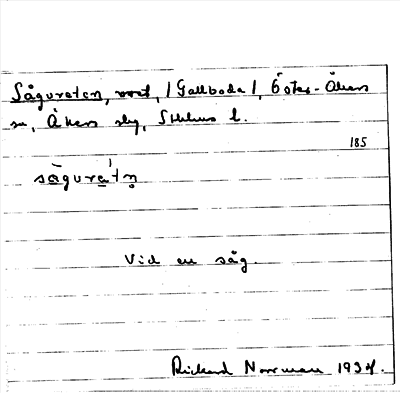 Sågvreten, vret, /Gallboda/, Öster-Åkers
sn, Åkers skg, Sthlms l.
185
sågvre̱tn̥
Vid en såg.
Rickard Norrman 1934.